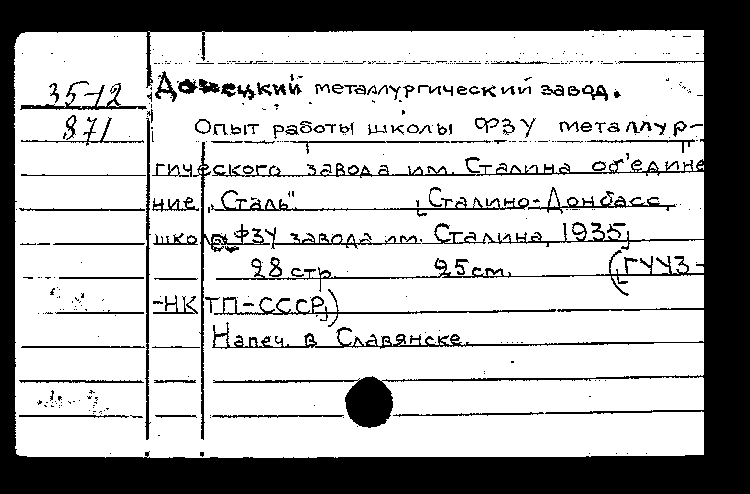 35-12
871
Донецкий металлургический завод.
Опыт работы школы ФЗУ металлур-
гического завода им. Сталина об'едине
ние „Сталь". [Сталино-Донбасс,
школа ФЗУ завода им. Сталина, 1935]
28 стр. 25 см. ([ГУУЗ-
-НКТП-СССР])
Напеч. в Славянске.